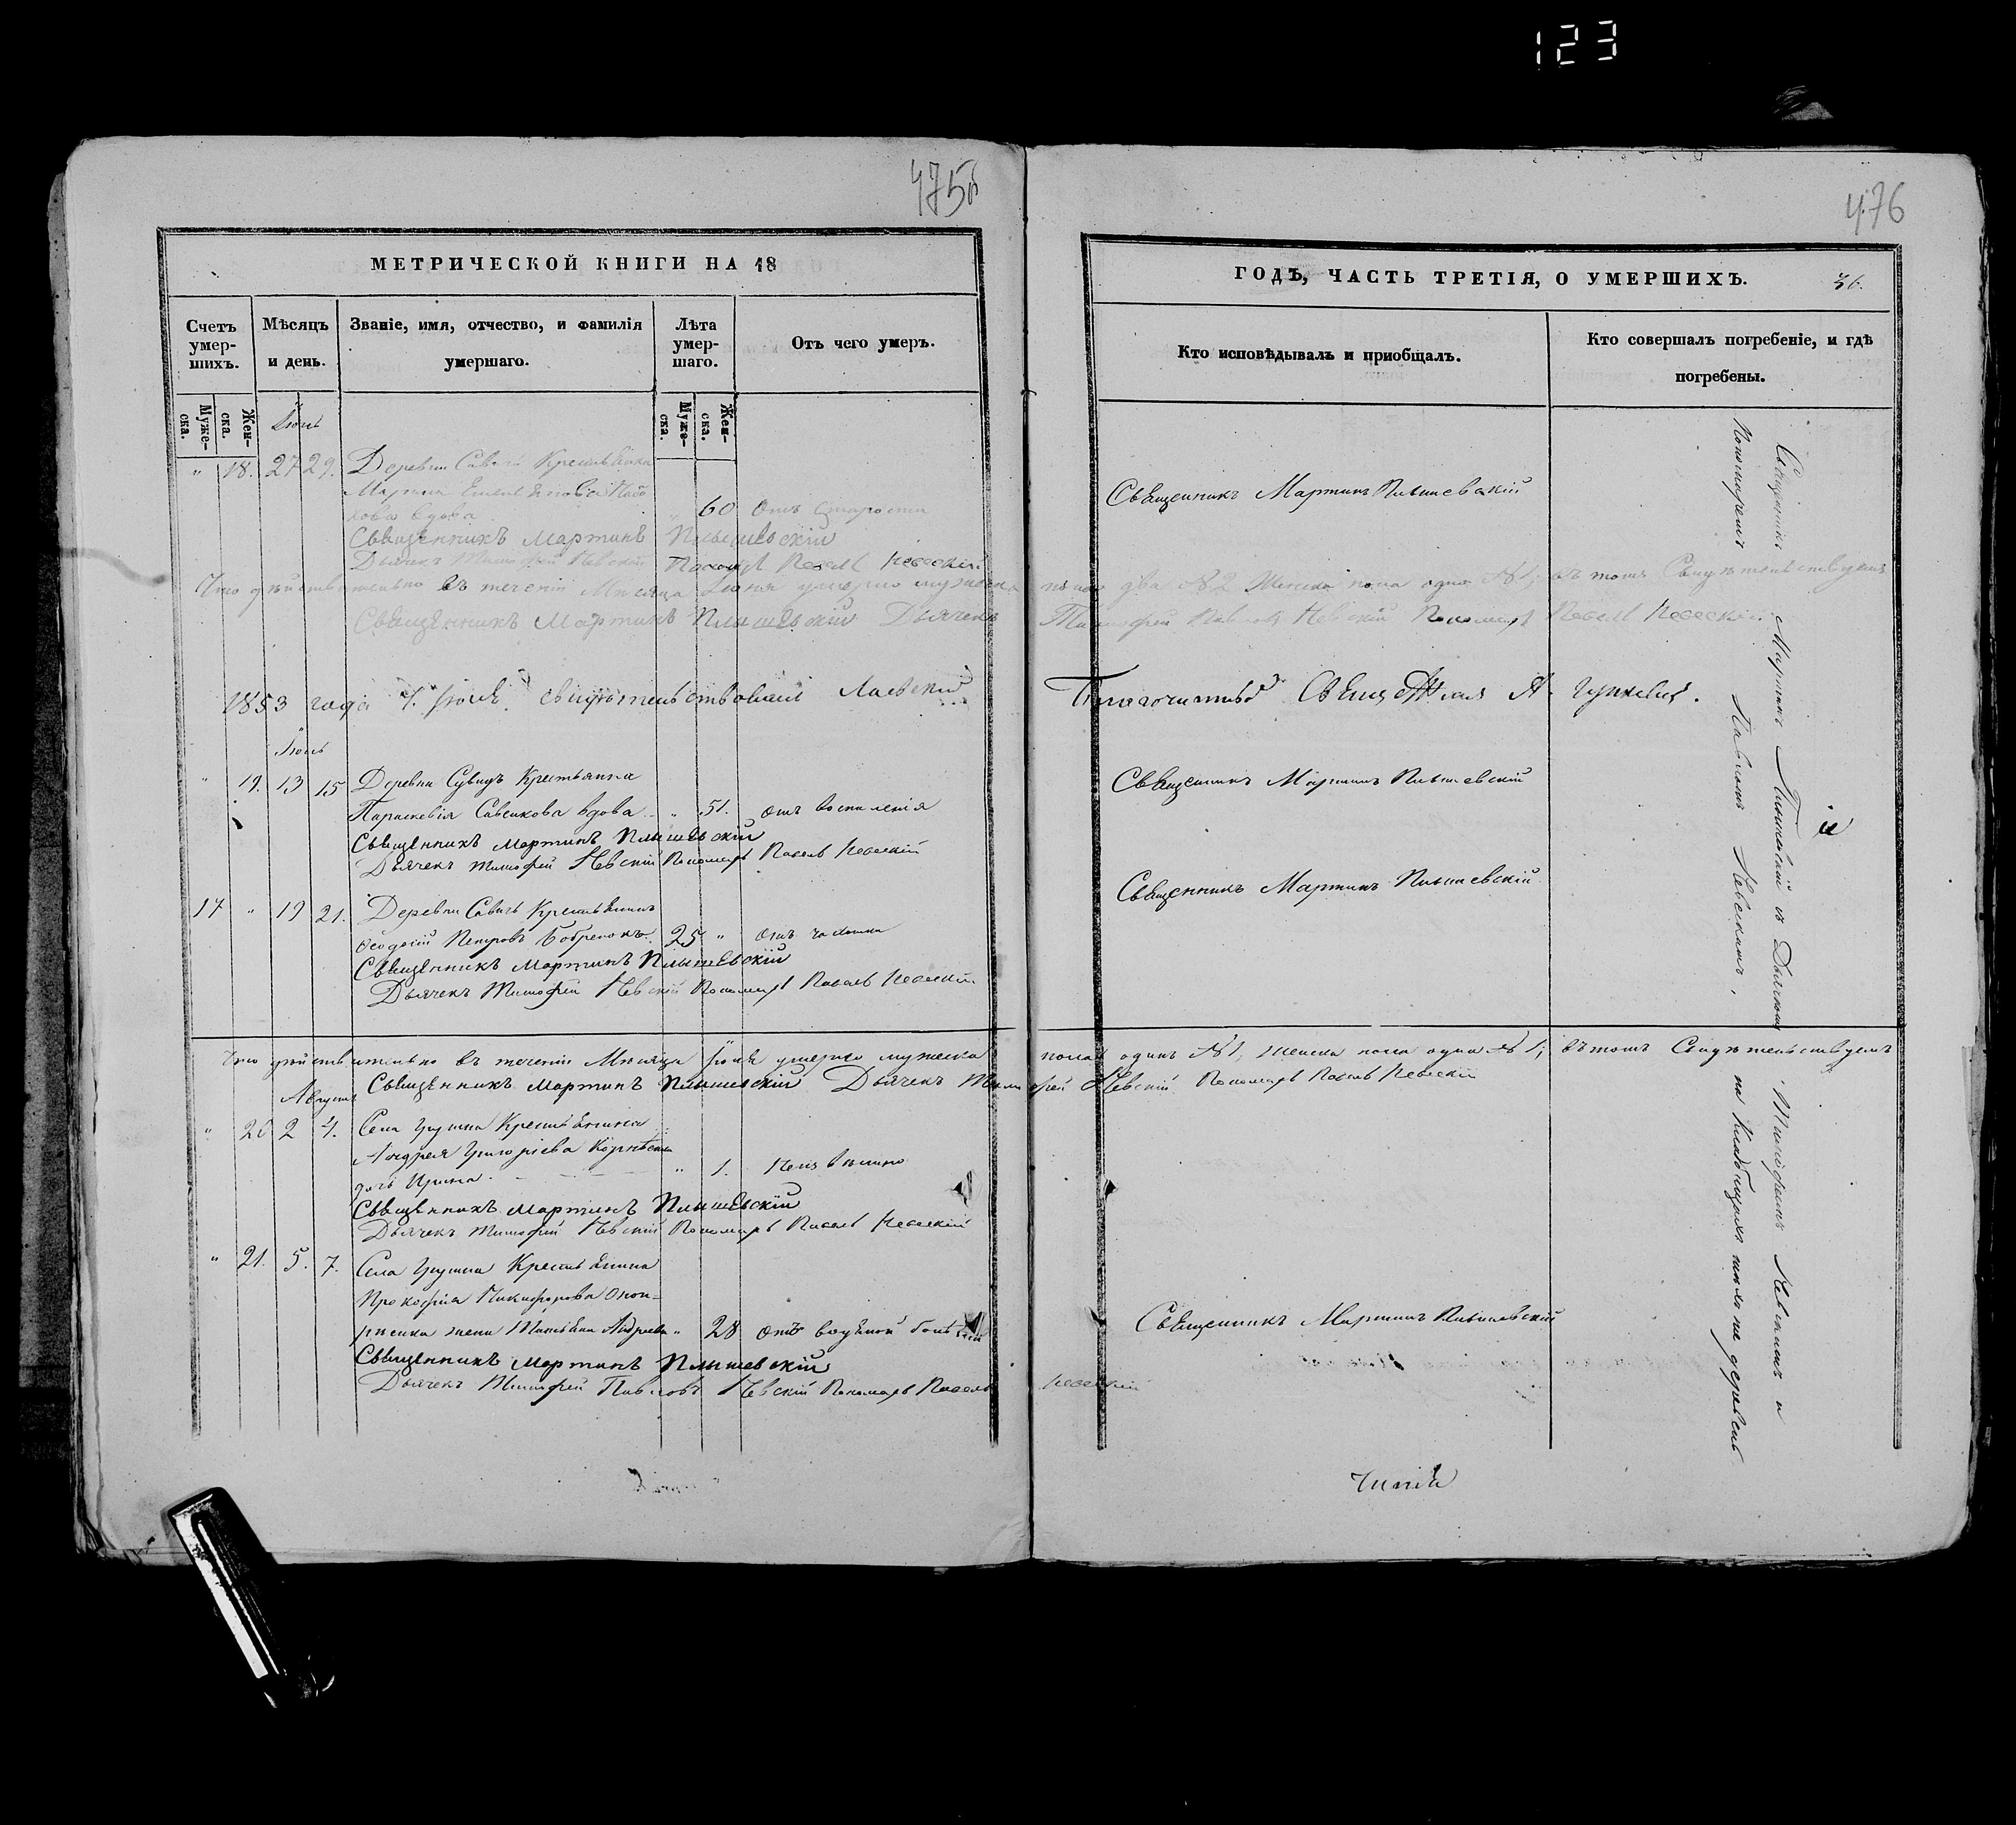 123
475об
476
МЕТРИЧЕСКОЙ КНИГИ НА 18
ГОДЪ, ЧАСТЬ ТРЕТІЯ, О УМЕРШИХЪ.
36.
Счетъ умер-шихъ.
Мѣсяцъ и день.
Званіе, имя, отчество, и фамилія умершаго.
Лѣта умер-шаго.
Отъ чего умеръ.
Кто исповѣдывалъ и приобщалъ.
Кто совершалъ погребеніе, и гдѣ погребены.
Муже-ска.
Жен-ска.
Муже-ска.
Жен-ска.
Іюнь
" 18. 27 29. Деревни Савичъ Крестьянка
Марина
кова вдова " 60 Отъ Старости
Священникъ Мартинъ Плышевскій
Священникъ Мартинъ Плышевскій
Дьячекъ Тимофей Невскій Пономарь Павелъ Невскій
Что дѣйствительно въ теченіи Мѣсяца Іюня умерло мужеска пола два №2 Женска пола одна №1, въ томъ Свидѣтельствуемъ
Священникъ Мартинъ Плышевскій Дьячекъ Тимофей Павловъ Невскій Пономарь Павелъ Невскій
1853 года Іюля свидѣтельствовалъ Благочинный Священ
Іюль
" 19. 13 15 Деревни Сувидъ Крестьянка
Параскевія Савенкова вдова " 51. отъ воспаленія
Священникъ Мартинъ Плышевскій
Священникъ Мартинъ Плышевскій
Дьячекъ Тимофей Невскій Пономарь Павелъ Невскій
17 " 19 21. Деревни Савичъ Крестьянинъ
Феодосій Петровъ Бобренокъ. 25 " Отъ чахотки
Священникъ Мартинъ Плышевскій
Священникъ Мартинъ Плышевскій
Дьячекъ Тимофей Невскій Пономарь Павелъ Невскій
Что дѣйствительно въ теченіи Мѣсяца Іюля умерло мужеска пола одинъ №1, женска пола одна №1, въ томъ Свидѣтельствуемъ
Священникъ Мартинъ Плышевскій Дьячекъ Тимофей Невскій Пономарь Павелъ Невскій
Августъ
" 20 2 4. Села Крестьянина
Андрея Григоріева
дочь Ирина. " 1. Неизвѣстно
Священникъ Мартинъ Плышевскій
Дьячекъ Тимофей Невскій Пономарь Павелъ Невскій
" 21. 5. 7. Села Крестьянина
Прокофія Никифорова
жена Татьяна Андреева " 28 отъ водяной болѣзни
Священникъ Мартинъ Плышевскій
Священникъ Мартинъ Плышевскій
Дьячекъ Тимофей Павловъ Невскій Пономарь Павелъ Невскій
Священникъ Мартинъ Плышевскій съ Дьячкомъ Тимофеемъ Невскимъ и
Пономаремъ Павломъ Невскимъ, на Кладбищахъ деревень